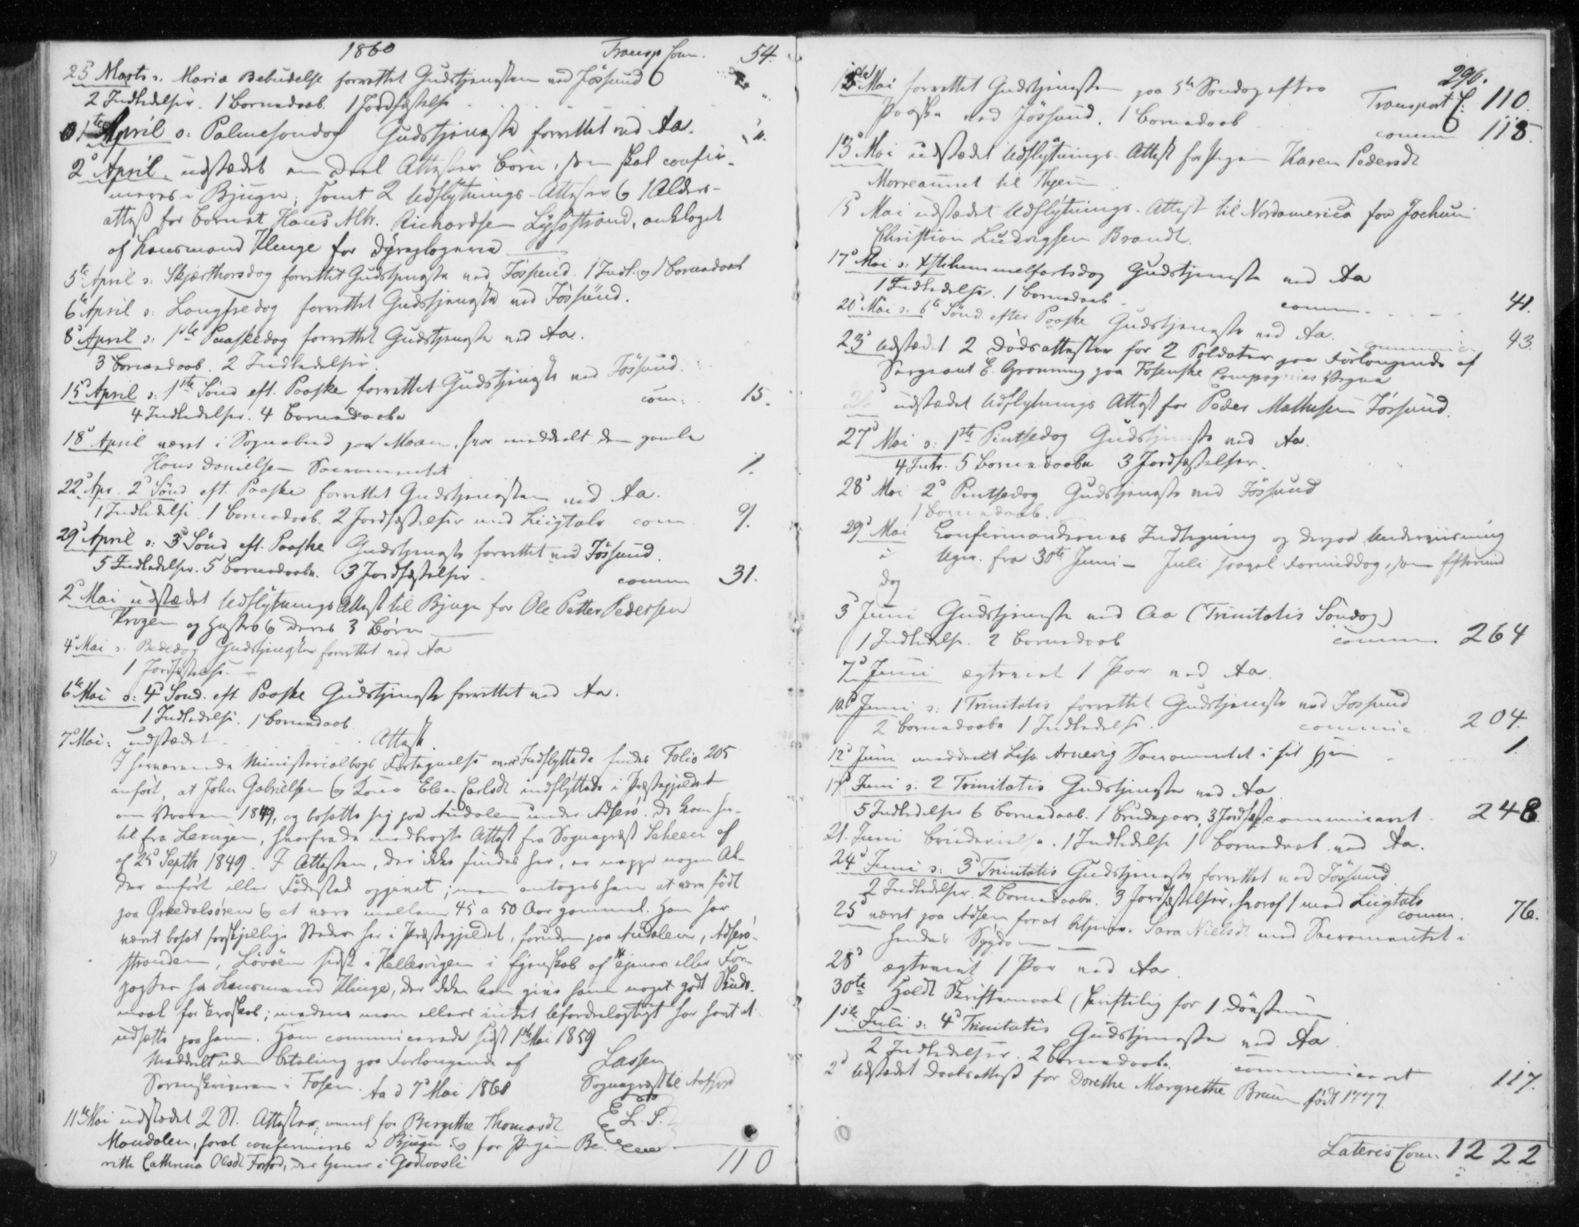 1860 Transp Com. 54.
25 Marts s. Maria Bebudelse forrettet Gudstjenesten ved Jössund
2 Indledelser. 1 Barnedaab 1 Jordfæstelse
1ste April s: Palmesøndag Gudstjeneste forrettet ved Aa.
2d April udstædt en Deel Attester Börn, som skal confir-
meres i Bjugn; samt 2 Udflytnings-Attester og 1 Alders-
attest for Barnet Hans Richardsen Lysöstrand, anklaget
af Lensmand Klenge for
5te April s. Skjærthorsdag forrettet Gudstjeneste ved Jössund. 1 Indl. og 1 Barnedaab
6te April s: Langfredag forrettet Gudstjeneste ved Jössund.
8d April s: 1ste Paaskedag forrettet Gudstjeneste ved Aa.
3 Barnedaab. 2 Indledelser.
15d April s: 1ste Sönd eft. Paaske forrettet Gudstjeneste ved Jössund.
4 Indledelser. 4 Barnedaabe com. 15.
18d April været i Sognebud paa Moan, hvor meddelt den gamle
Hans Danielsen Sacramentet 1.
22d Apr. 2d Sönd eft. Paaske forrettet Gudstjenesten ved Aa.
1 Indledelse 1 Barnedaab. 2 Jordfæstelser med Liigtale com 9.
29d April s: 3d Sönd eft. Paaske Gudstjeneste forrettet ved Jössund.
5 Indledelser. 5 Barnedaabe. 3 Jordfæstelser. comm 31.
2d Mai udstædet Udflytnings Attest til Bjugn for Ole Petter Pedersen
og Hustro og deres 3 Börn
4d Mai s. Bededag Gudstjeneste forrettet ved Aa
1 Jordfæstelse.
6te Mai s: 4d Sönd. eft Paaske Gudstjeneste forrettet ved Aa.
1 Indledelse. 1 Barnedaab
7d Mai: udstædet Attest
I herværende Ministerialbogs Fortegnelse over Indflyttede findes Folio 205
anfört, at John Gabrielsen og Kone Elen Carlsdt indflyttede i Præstegjeldet
om Vaaren 1849, og bosatte sig paa Audalen under Adsero. De kom her-
til fra Lexvigen, hvorfra de medbragte Attest fra Sognepræst
af 25d Septb 1849. I Attesten, der ikke findes her, er nogen Al-
der anfört eller Födested opgivet; men antoges ham at være född
paa Örkedalsören og at være mellem 45 a 50 Aar gammel. Han har
været bosat forskjellige Steder her i Præstegjeldet, foruden paa Audalen,
stranden, Lövöen sidst i Hellesvigen i Egenskab af Ejener eller For-
pagter hos Lensmand Klenge, der ikke kan give ham noget godt Skuds-
maal for Troskab; medens man ellers intet har havt at
udsætte paa ham. Han communicerede sidst 1ste Mai 1859
Meddelt uden Betaling paa Forlangende af Lassen
Sorenskriveren i Fosen. Aa d 7d Mai 1860 Sognepræst til Aafjord
11te Mai udstædet 2 St. Attester, for Bergitte Thomasdt L. S.
Mandalen, forat confirmeres i Bjugn og for Pigen Be-
rith Cathrina Olsdt der tjener i Godvasli 110
296.
Mai forrettet Gudstjenesten paa 5te Söndag efter Transport C: 110.
Paaske ved Jössund. 1 Barnedaab comm 118.
13d Mai udstædet Udflytnings-Attest for Pigen Karen Pedersdt
Morreaunet til
15 Mai udstædet Udflytnings-Attest til Nordamerica for Jochum
Christian Ludvigsen Brandt.
17d Mai s: Christi himmelfartsdag Gudstjeneste ved Aa
1 Indledelse. 1 Barnedaab comm 41.
20d Mai s: 6te Sönd. efter Paaske Gudstjeneste ved Aa. communic 43.
23d udstædt 2 Dödsattester for 2 Soldater paa Forlangende af
Sergeant E. Grönning paa Fosenske Compagnies Vegne
udstædet Udflytnings Attest for Peder Mathisen Jössund.
27d Mai s: 1ste Pintsedag Gudstjeneste ved Aa.
4 Intr. 5 Barnedaabe 3 Jordfæstelser.
28d Mai 2d Pintsedag Gudstjeneste ved Jössund
1 Barnedaab.
29d Mai Confirmandernes Indtegning og Underviisning
fra 30te Juni - Juli Formiddag, som Eftermid
dag
3d Juni Gudstjeneste ved Aa (Trinitatis Söndag)
1 Indledelse. 2 Barnedaab comm 264
7d Juni ægteviet 1 Par ved Aa.
10d Juni s: 1 Trinitatis forrettet Gudstjeneste ved Jössund
2 Barnedaabe 1 Indledelse. communic 204.
12d Juni meddelt Lisa Arnevig Sacramentet i sit Hjem 1.
17d Juni s. 2 Trinitatis Gudstjeneste ved Aa.
5 Indledelser 6 Barnedaab. 1 Brudepar, 3 Jordfæst communicaret 248
21. Juni. 1 Indledelse 1 Barnedaab ved Aa.
24d Juni s: 3d Trinitatis Gudstjeneste forrettet ved Jössund
2 Indledelser. 2 Barnedaabe. 3 Jordfæstelser, hvoraf 1 med Liigtale comm. 76.
25d været paa forat betjene Sara Nielsdt med Sacramentet i
hendes Sygdom
28d ægteviet 1 Par ved Aa.
30te Holdt Skriftemaal
1ste Juli s: 4d Trinitatis Gudstjeneste ved Aa
2 Indledelser. 2 Barnedaab. communicaret 117.
2d udstædt Daabsattest for Dorethe Margrethe Bruun född 1777.
Lateris Com. 1222